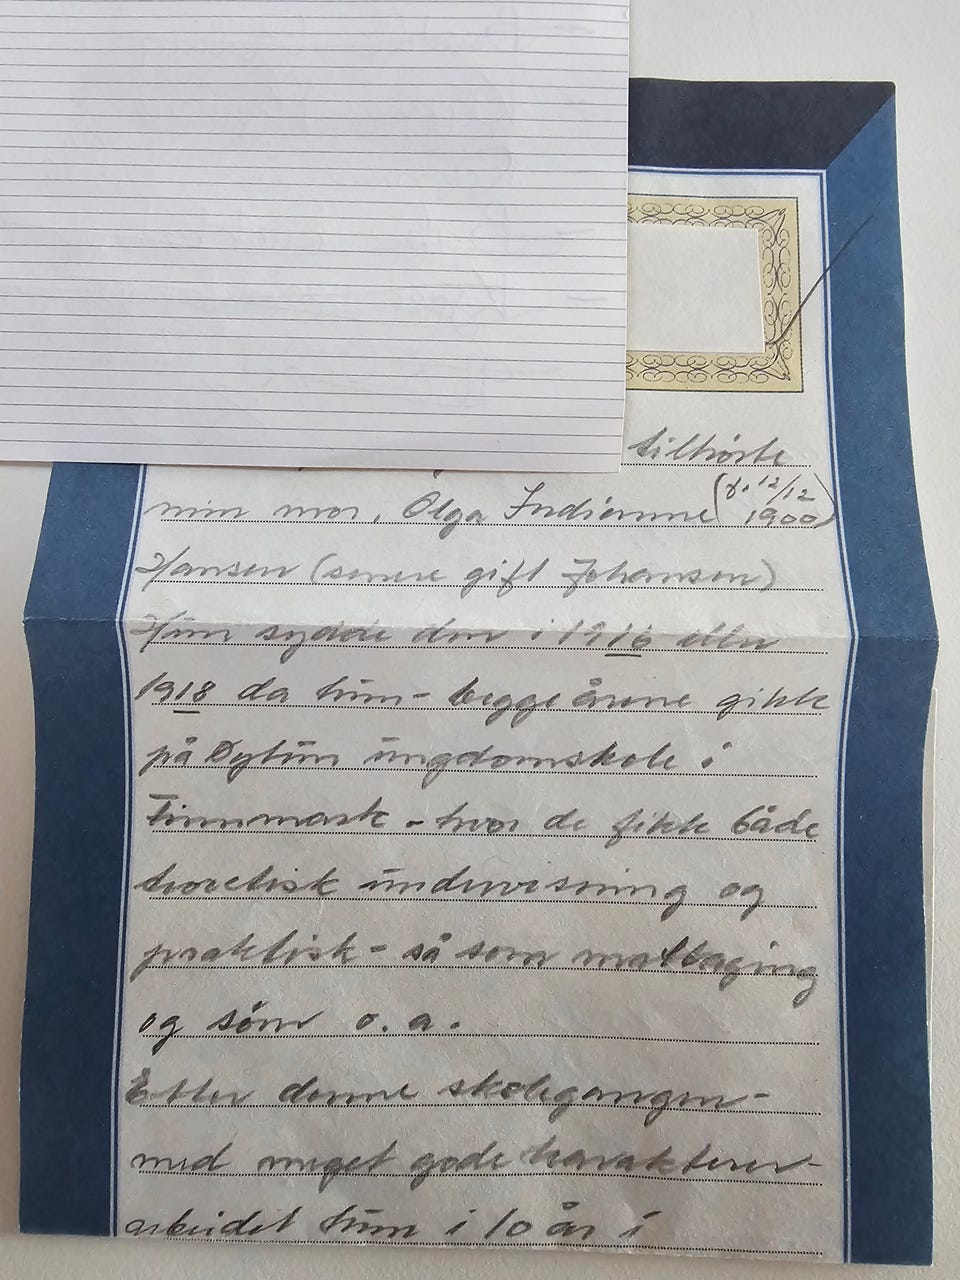 tilhørte
min mor, Olga Indianne (f. 12/12 1900)
Hansen (senere gift Johansen)
Hun sydde den i 1916 eller
1918 da hun - begge årene gikk
på ungdomskole i
Finnmark - hvor de fikk både
teoretisk undervisning og
praktisk - så som matlaging
og søm o.a.
Etter denne skolegangen -
med meget gode karakterer -
arbeidet hun i 10 år i